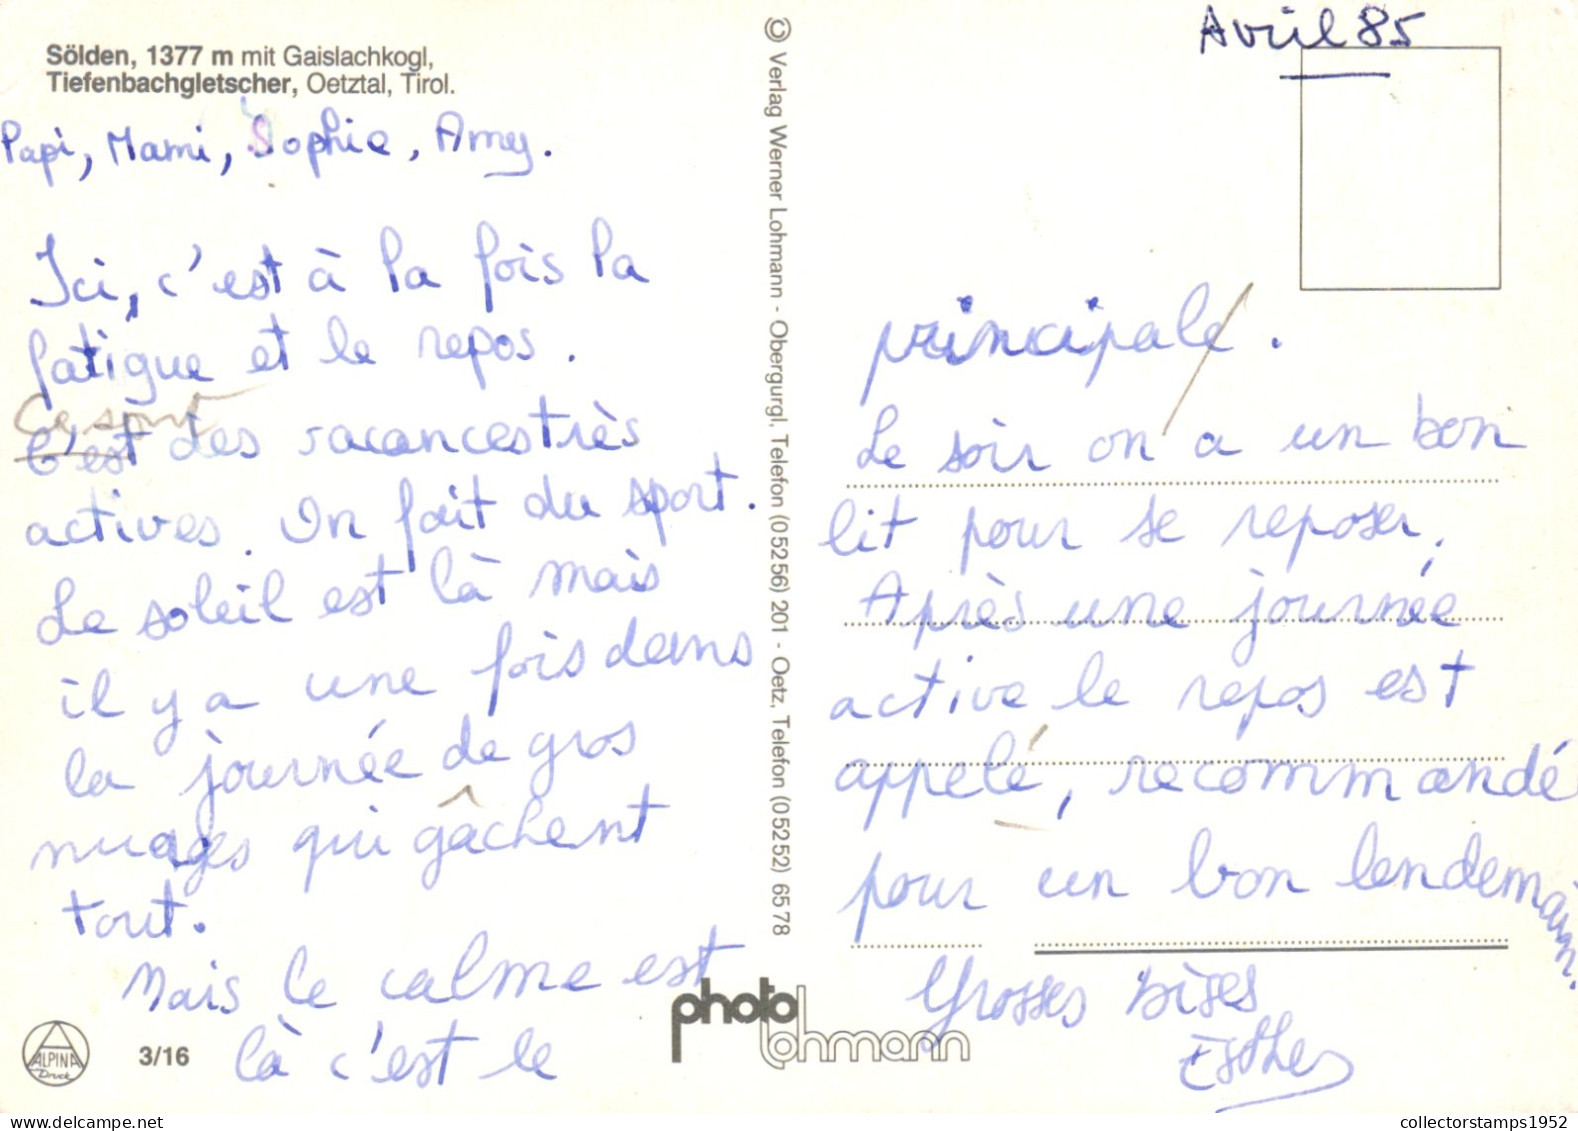 Sölden, 1377 m mit Gaislachkogl,
Tiefenbachgletscher, Oetztal, Tirol.
Papi, Mami, Sophie, Amy.
Ici, c'est à la fois la
fatigue et le repos.
Ce sont
C'est des vacances très
actives. On fait du sport.
Le soleil est là mais
il y a une fois dans
la journée de gros
nuages qui gâchent
tout.
Mais le calme est
là c'est le
ALPINA
Druck
3/16
© Verlag Werner Lohmann - Obergurgl, Telefon (05256) 201 - Oetz, Telefon (05252) 6578
photo
lohmann
Avril 85
principale.
Le soir on a un bon
lit pour se reposer.
Après une journée
active le repos est
appelé, recommandé
pour un bon lendemain.
Grosses bises
Esther
collectorstamps1952